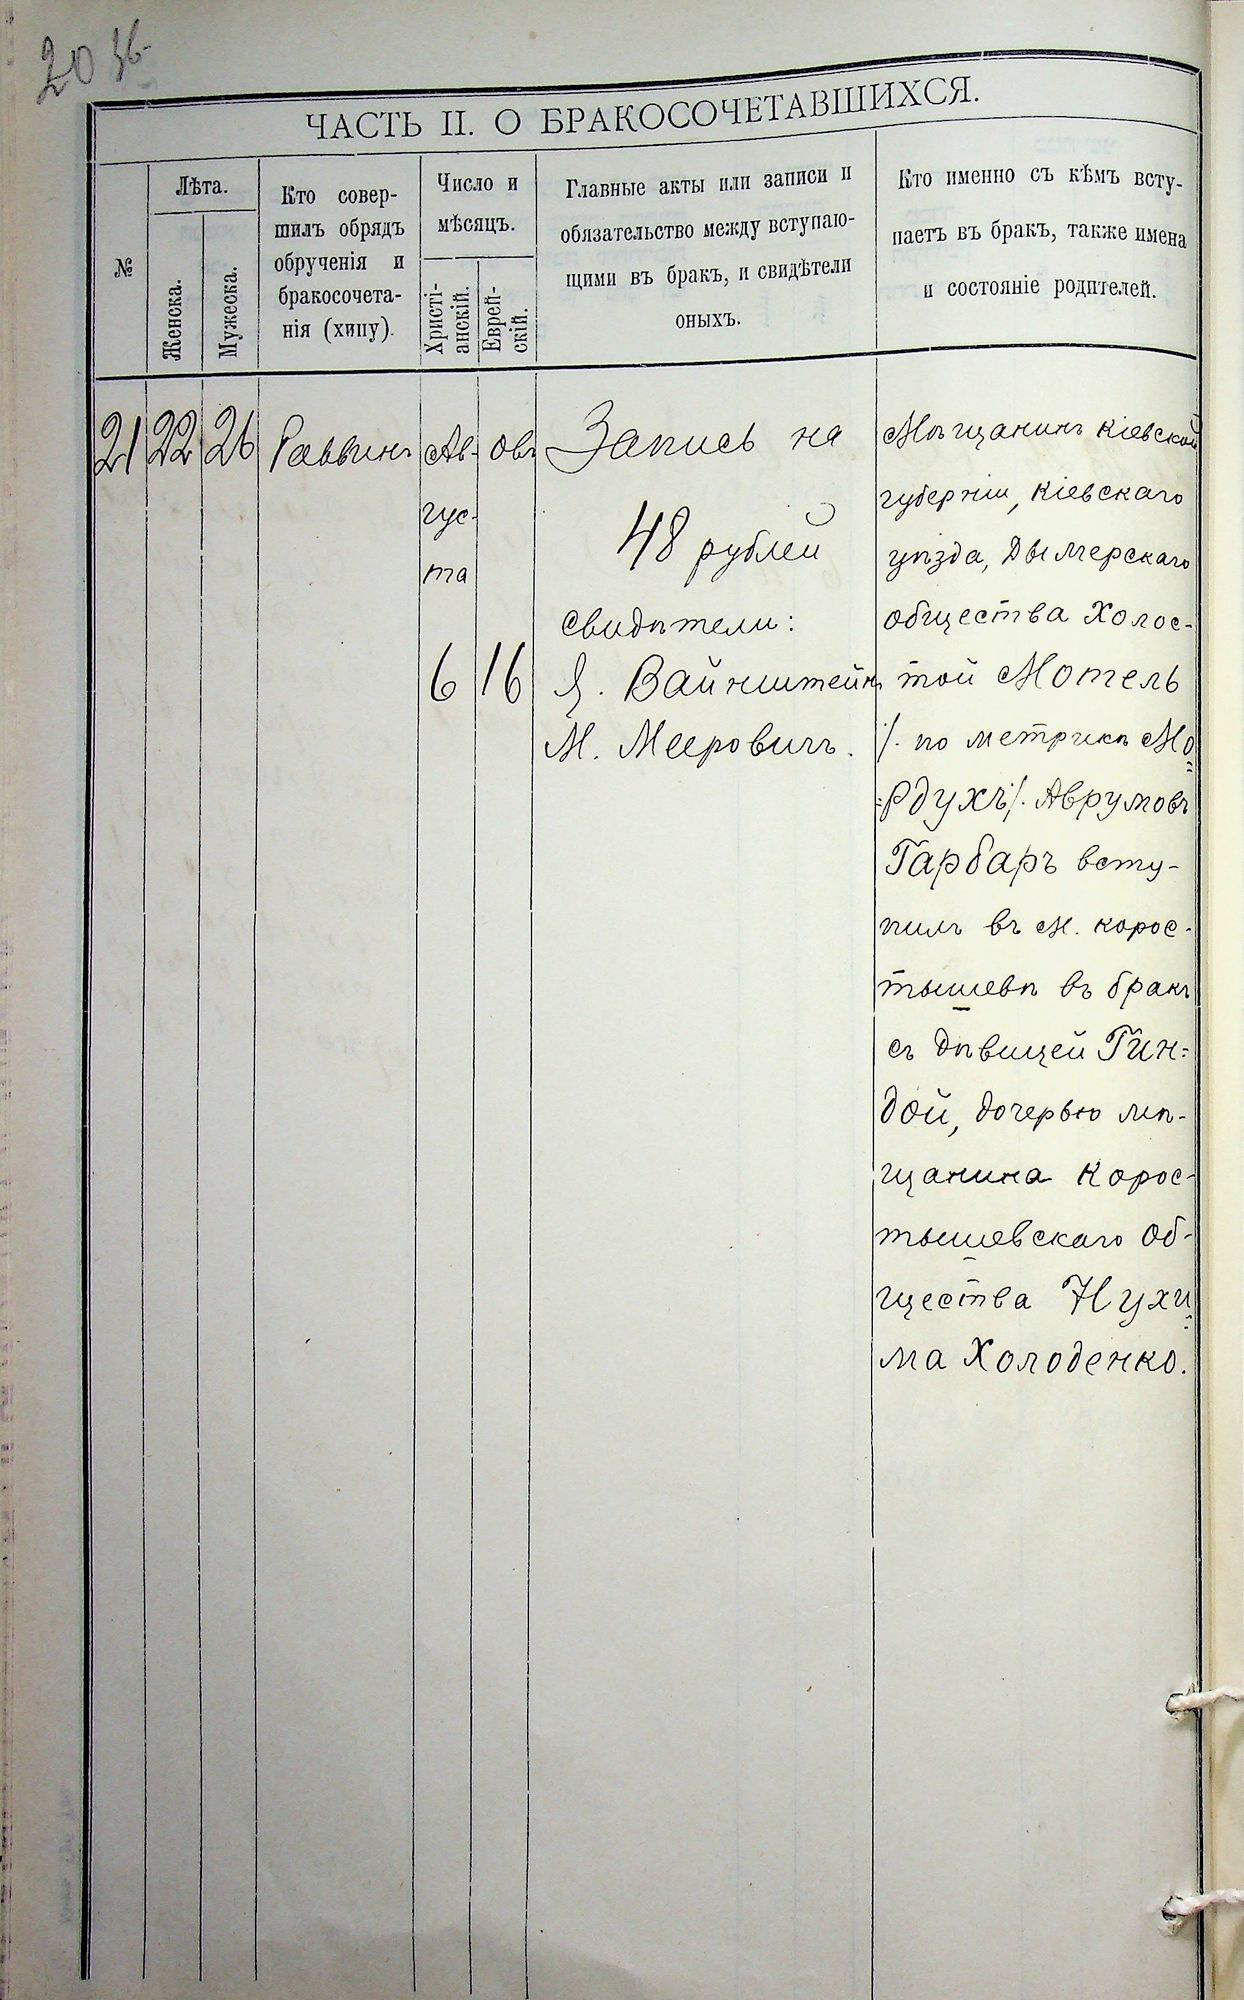 20 об.
ЧАСТЬ II. О БРАКОСОЧЕТАВШИХСЯ.
№
Лѣта.
Женска.
Мужеска.
Кто совер-
шилъ обрядъ
обрученія и
бракосочета-
нія (хипу).
Число и
мѣсяцъ.
Христі-
анскій.
Еврей-
скій.
Главные акты или записи и
обязательство между вступаю-
щими въ бракъ, и свидѣтели
оныхъ.
Кто именно съ кѣмъ всту-
паетъ въ бракъ, также имена
и состояніе родителей.
21
22
26
Раввинъ
Ав-
гус-
та
6
овъ
16
Запись на
48 рублей
свидѣтели:
Я. Вайнштейнъ
М. Мееровичъ.
Мѣщанинъ Кіевской
губерніи, Кіевскаго
уѣзда, Дымерскаго
общества Холос-
той Мотель
/. по метрикѣ Мо
=рдухъ/. Аврумовъ
Гарбаръ всту-
пилъ въ м. Корос-
тышевѣ въ бракъ
съ дѣвицей Гин=
дой, дочерью мѣ-
щанина Корос-
тышевскаго об-
щества Нухи=
ма Холоденко.